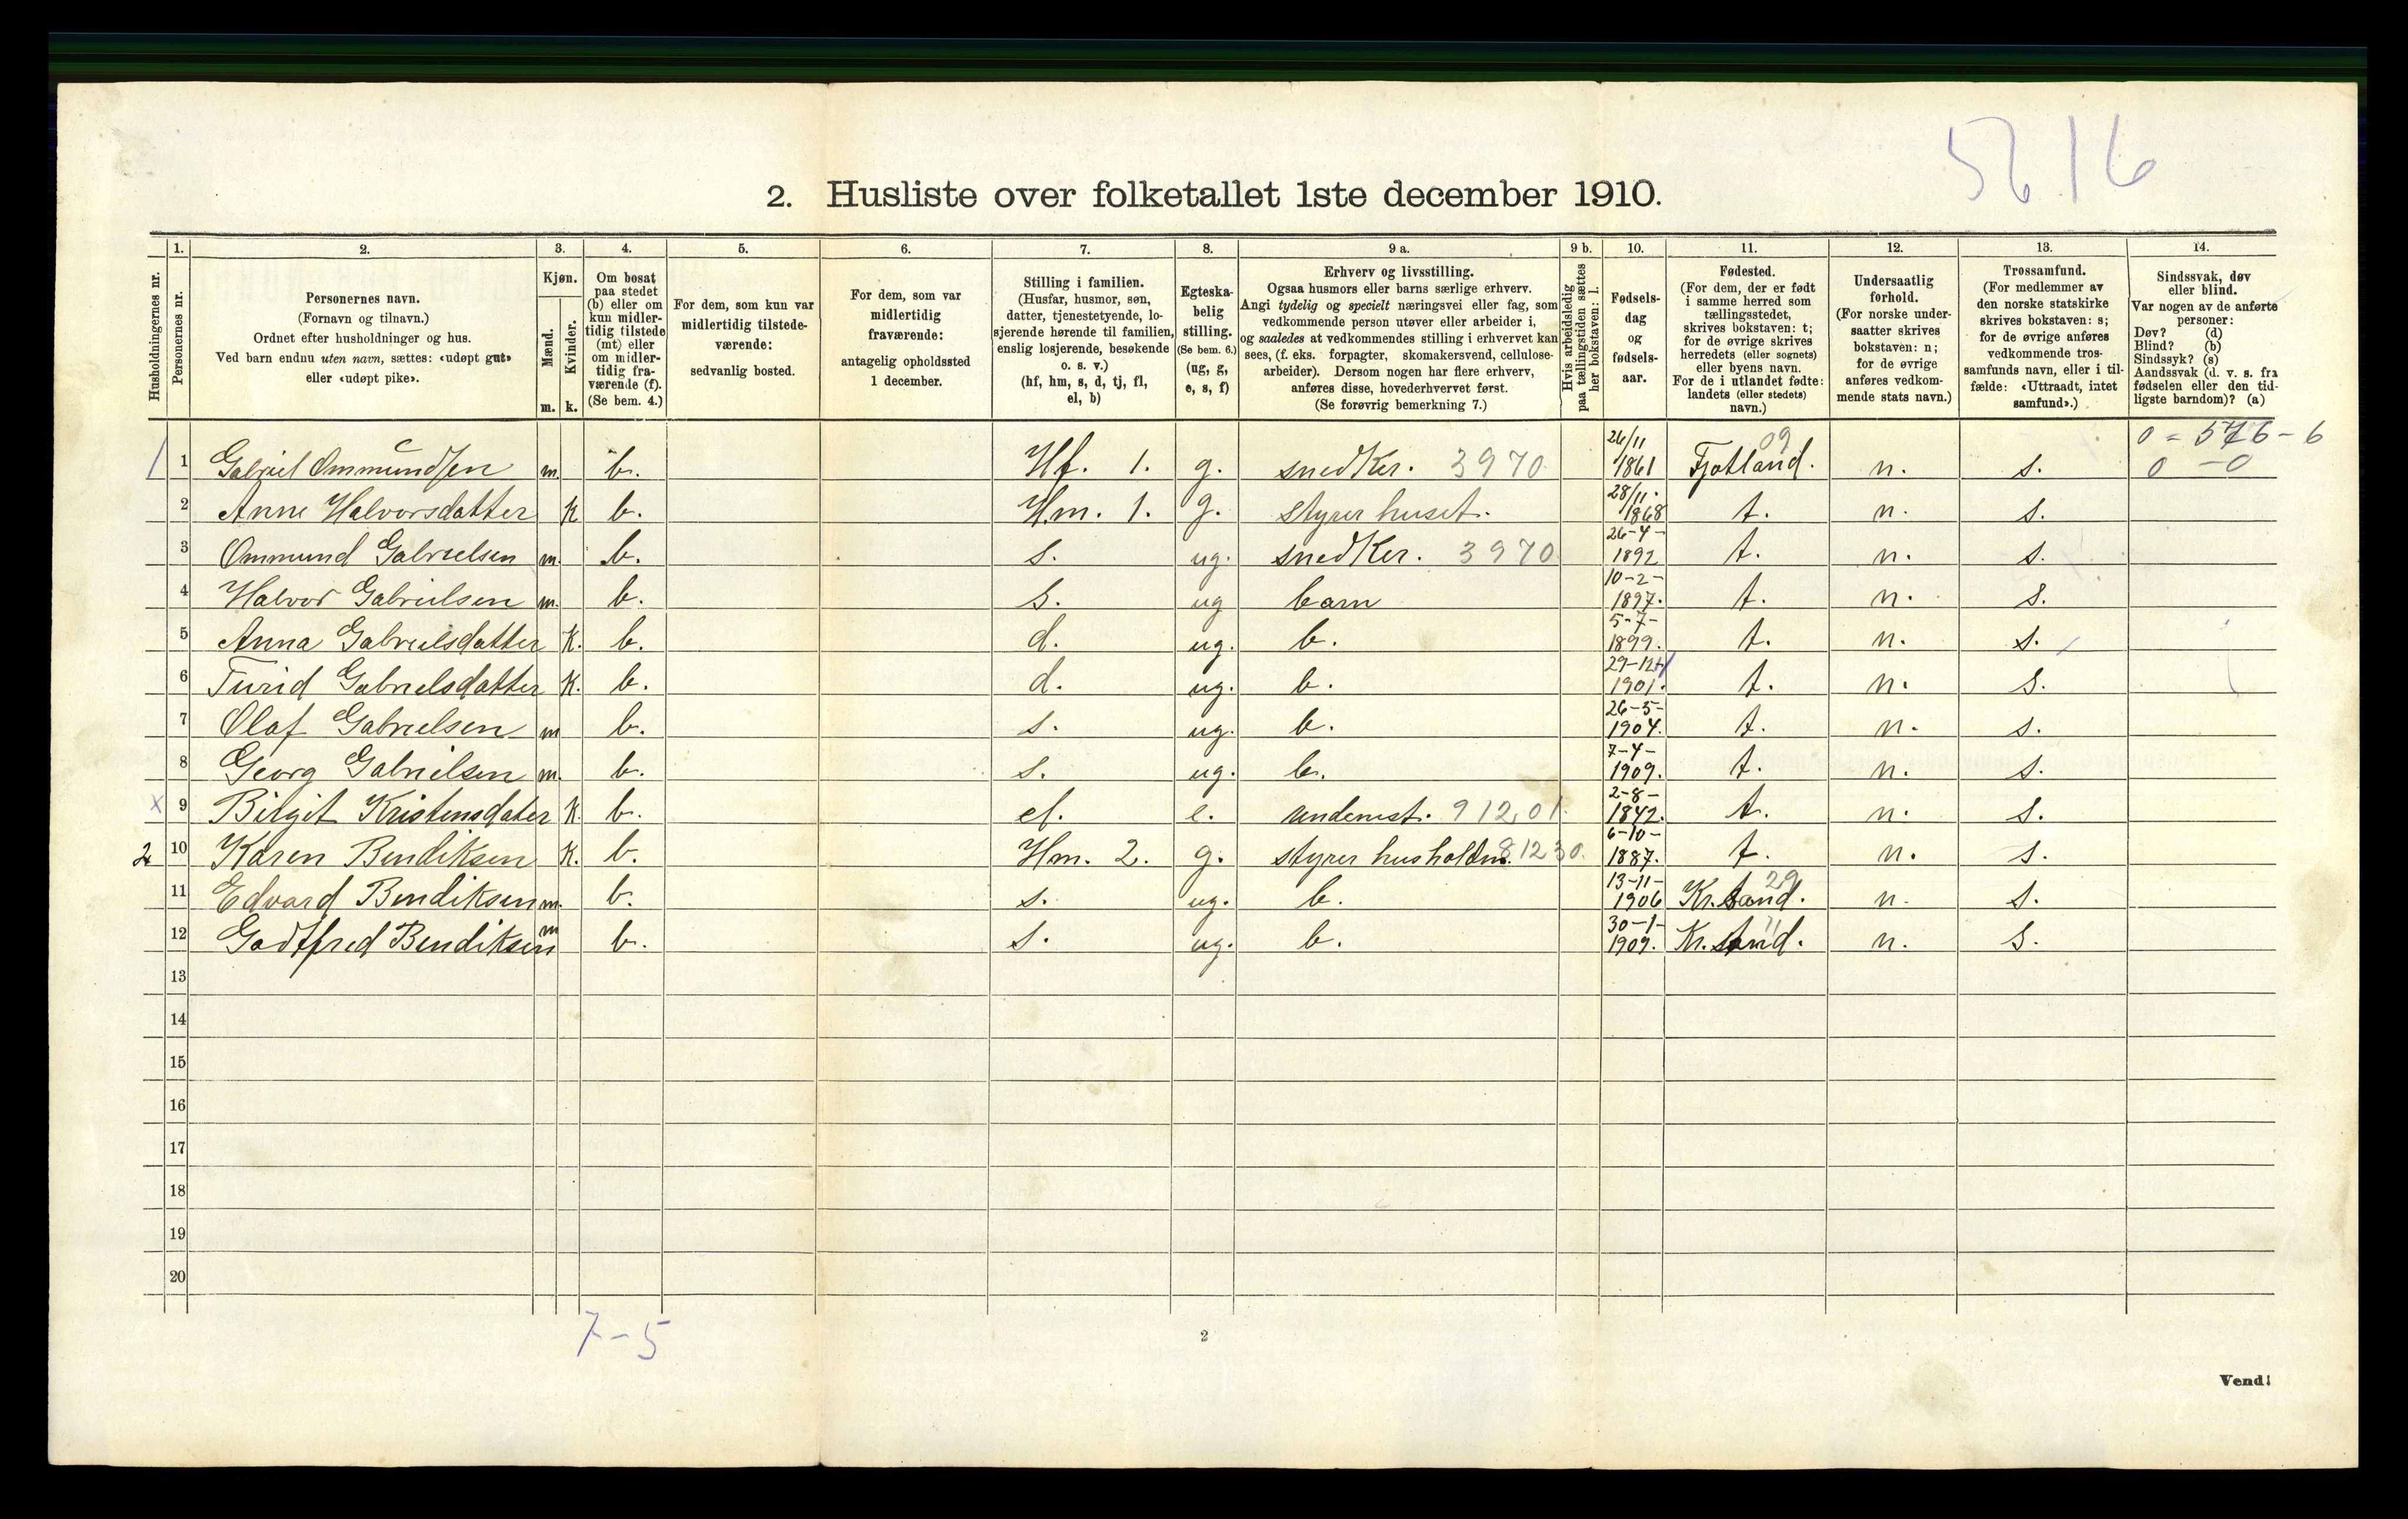 56.16
2. Husliste over folketallet 1ste december 1910.
1. 2. 3. 4. 5. 6. 7. 8. 9 a. 9 b. 10. 11. 12. 13. 14.
Husholdningernes nr.
Personernes nr.
Personernes navn.
(Fornavn og tilnavn.)
Ordnet efter husholdninger og hus.
Ved barn endnu uten navn, sættes: «udøpt gut»
eller «udøpt pike».
Kjøn.
Mænd.
Kvinder.
m. k.
Om bosat
paa stedet
(b) eller om
kun midler-
tidig tilstede
(mt) eller
om midler-
tidig fra-
værende (f).
(Se bem. 4.)
For dem, som kun var
midlertidig tilstede-
værende:
sedvanlig bosted.
For dem, som var
midlertidig
fraværende:
antagelig opholdssted
1 december.
Stilling i familien.
(Husfar, husmor, søn,
datter, tjenestetyende, lo-
sjerende hørende til familien,
enslig losjerende, besøkende
o. s. v.)
(hf, hm, s, d, tj, fl,
el, b)
Egteska-
belig
stilling.
(Se bem. 6.)
(ug, g,
e, s, f)
Erhverv og livsstilling.
Ogsaa husmors eller barns særlige erhverv.
Angi tydelig og specielt næringsvei eller fag, som
vedkommende person utøver eller arbeider i,
og saaledes at vedkommendes stilling i erhvervet kan
sees, (f. eks. forpagter, skomakersvend, cellulose-
arbeider). Dersom nogen har flere erhverv,
anføres disse, hovederhvervet først.
(Se forøvrig bemerkning 7.)
Hvis arbeidsledig
paa tællingstiden sættes
her bokstaven: l.
Fødsels-
dag
og
fødsels-
aar.
Fødested.
(For dem, der er født
i samme herred som
tællingsstedet,
skrives bokstaven: t;
for de øvrige skrives
herredets (eller sognets)
eller byens navn.
For de i utlandet fødte:
landets (eller stedets)
navn.)
Undersaatlig
forhold.
(For norske under-
saatter skrives
bokstaven: n;
for de øvrige
anføres vedkom-
mende stats navn.)
Trossamfund.
(For medlemmer av
den norske statskirke
skrives bokstaven: s;
for de øvrige anføres
vedkommende tros-
samfunds navn, eller i til-
fælde: «Uttraadt, intet
samfund».)
Sindssvak, døv
eller blind.
Var nogen av de anførte
personer:
Døv? (d)
Blind? (b)
Sindssyk? (s)
Aandssvak (d. v. s. fra
fødselen eller den tid-
ligste barndom)? (a)
1 1 Gabriel Ommundsen m. b. Hf. 1. g. snedker. 3970 26/11 1861 Fjotland. 09 n. s. 0 - 0
2 Anne Halvorsdatter K b. Hm. 1. g. styrer huset. 28/11 1868 t. n. s.
3 Ommund Gabrielsen m. b. s. ug. snedker. 3970 26-4- 1892 t. n. s.
4 Halvor Gabrielsen m. b. s. ug barn 10-2- 1897. t. n. s.
5 Anna Gabrielsdatter K. b. d. ug. b. 5-7- 1899. t. n. s.
6 Turid Gabrielsdatter K. b. d. ug. b. 29-12 1901. t. n. s.
7 Olaf Gabrielsen m b. s. ug. b. 26-5- 1904. t. n. s.
8 Georg Gabrielsen m. b. s. ug. b. 7-4- 1909. t. n. s.
x 9 Birgit Kristensdater K. b. el. e. underst. 912,01 2-8- 1842. t. n. s.
2 10 Karen Bendiksen K. b. Hm. 2. g. styrer husholdn. 81230. 6-10- 1887. t. n. s.
11 Edvard Bendiksen m. b. s. ug. b. 13-11- 1906 Kr.sand. 29 n. s.
12 Godtfred Bendiksen m b. s. ug. b. 30-1- 1909. Kr.sand. " n. s.
13
14
15
16
17
18
19
20
7-5
2
Vend!